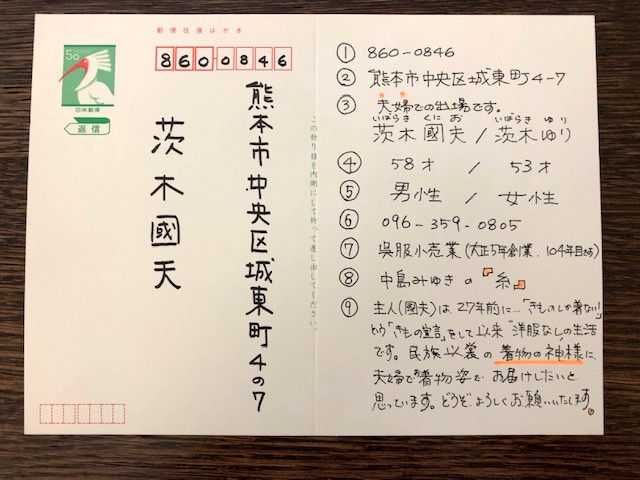 郵便往復はがき
50
日本郵便
返信
860 0846
熊本市中央区城東町4の7
茨木國夫
この折り目を内側にして折って差し出してください。
① 860-0846
② 熊本市中央区城東町4-7
③ 夫婦での出場です。
いばらき くにお いばらき ゆり
茨木國夫 / 茨木ゆり
④ 58才 / 53才
⑤ 男性 / 女性
⑥ 096-359-0805
⑦ 呉服小売業(大正5年創業、104年目です)
⑧ 中島みゆきの『糸』
⑨ 主人(國夫)は、27年前に…「きものしか着ない!」
という「きもの宣言」をして以来"洋服なし"の生活
です。民族衣裳の 着物の神様に、
夫婦で着物姿で お届けしたいと
思っています。どうぞ、よろしくお願いいたします。